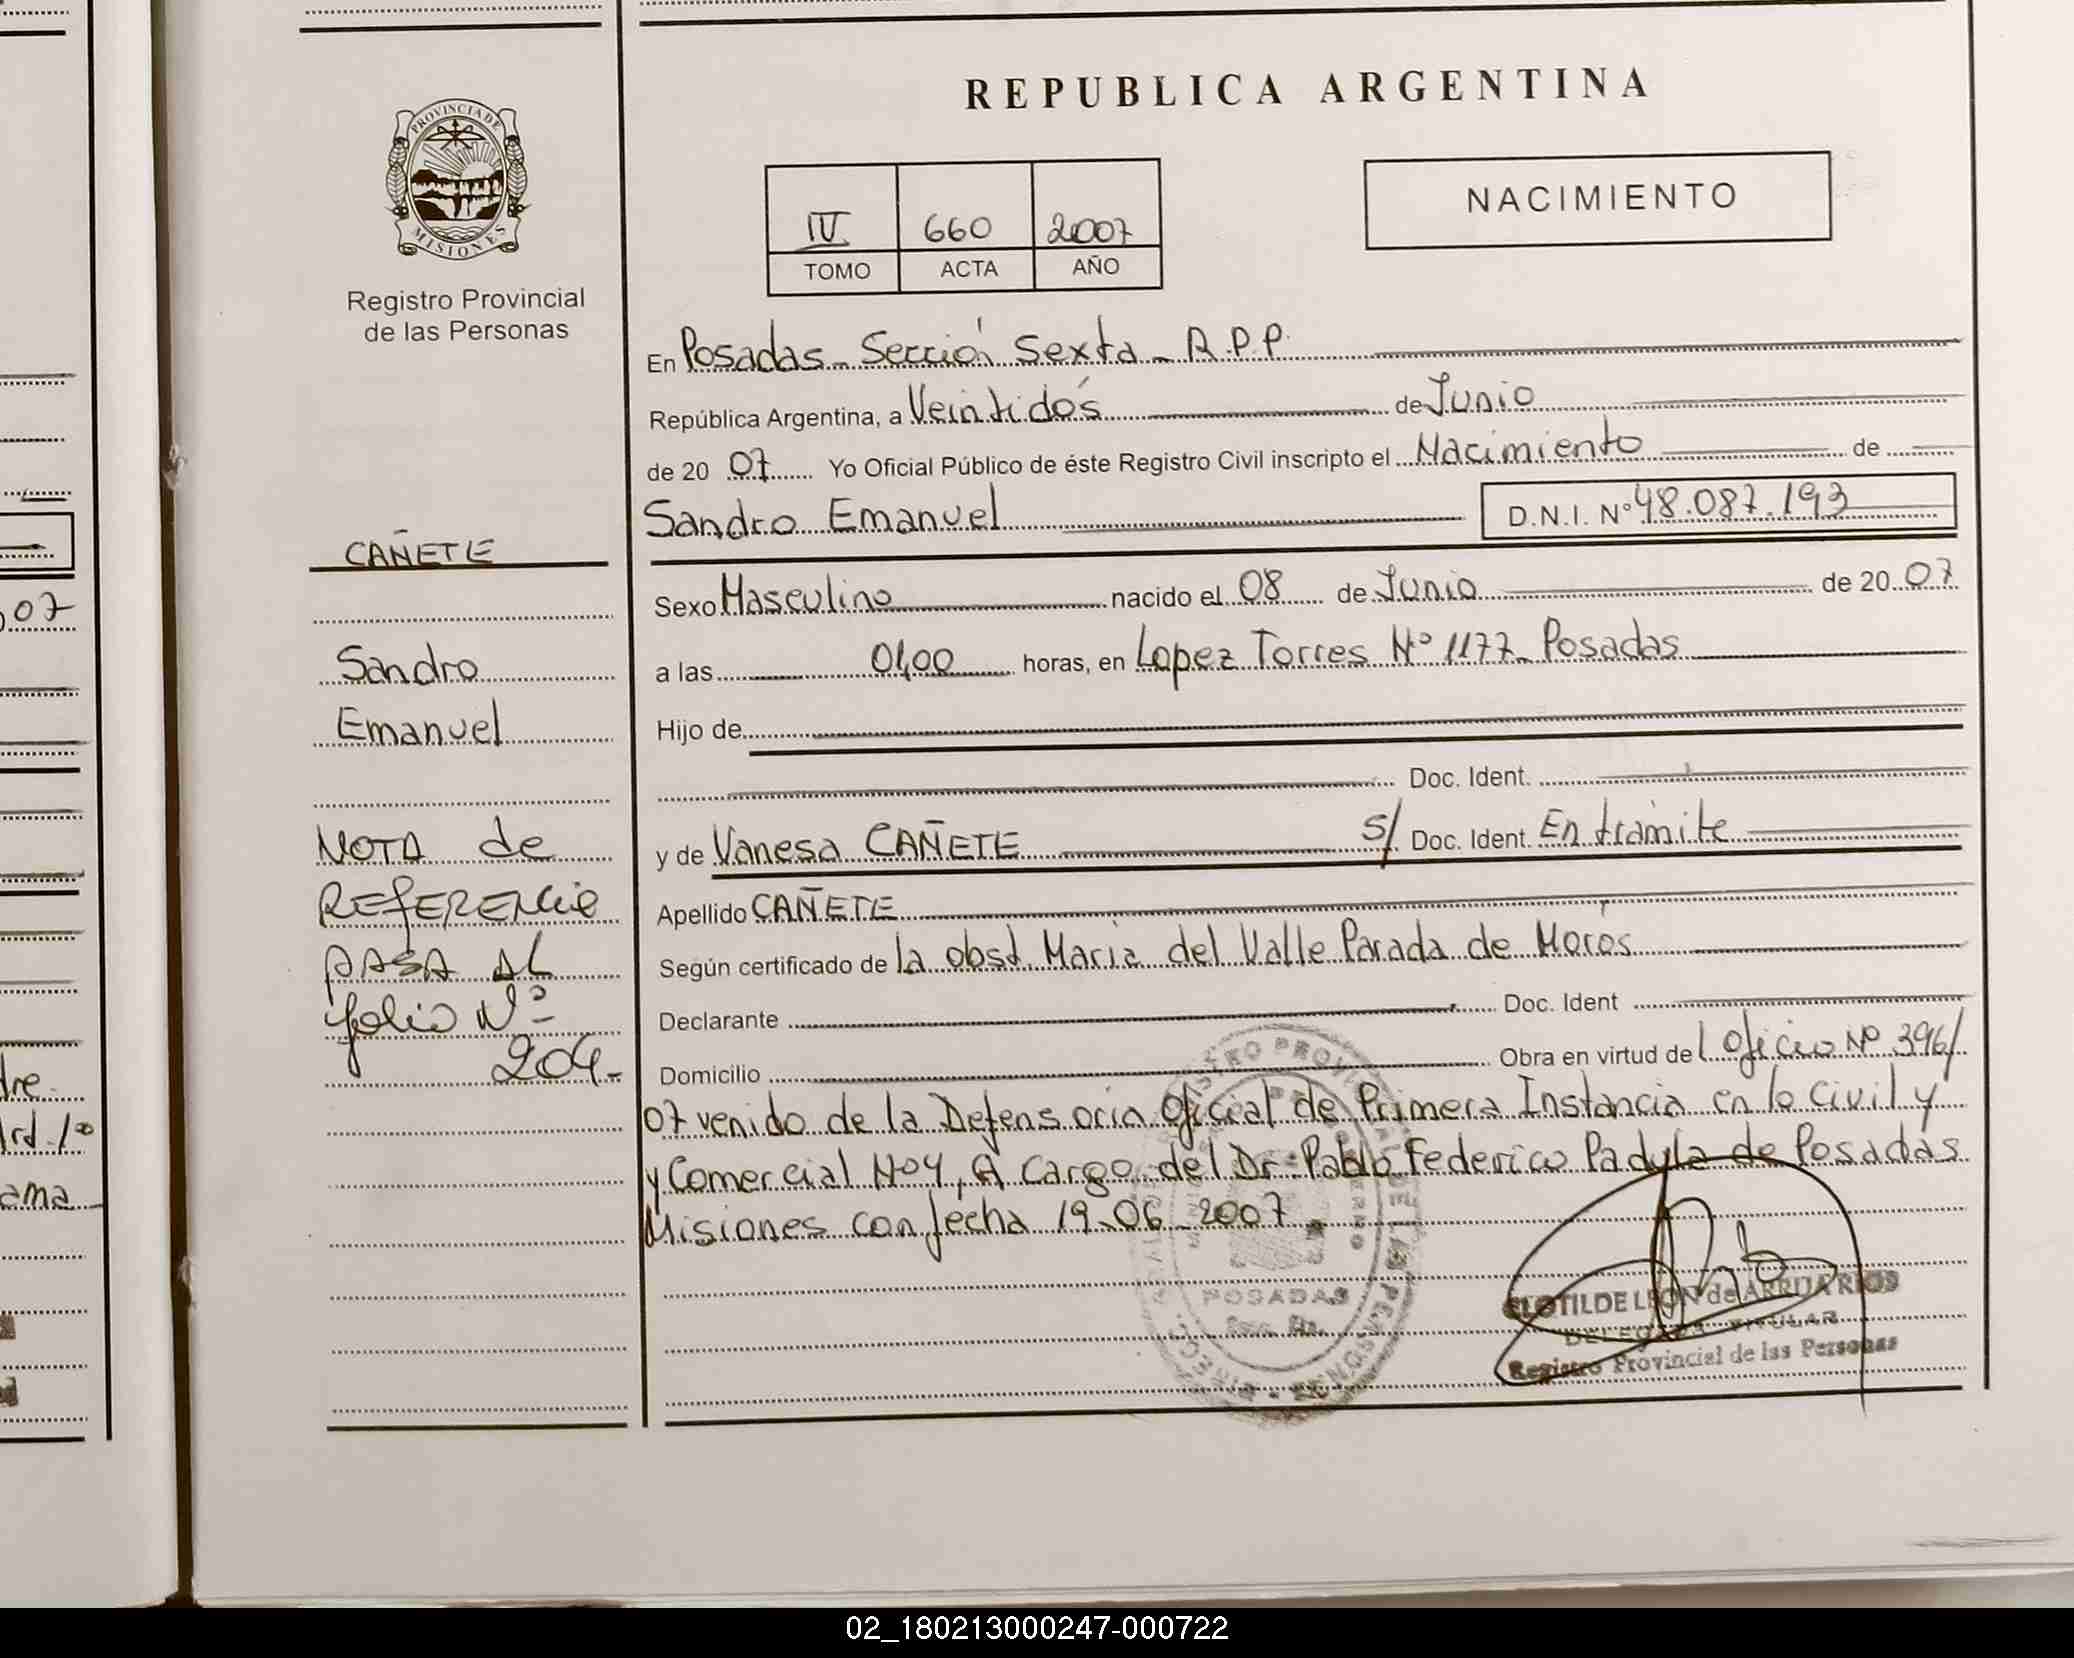 REPUBLICA ARGENTINA
PROVINCIA DE
MISIONES
Registro Provincial
de las Personas
NACIMIENTO
IV 660 2007
TOMO ACTA AÑO
En Posadas - Sección Sexta - R.P.P.
República Argentina, a Veintidós de Junio
de 20 07 Yo Oficial Público de éste Registro Civil inscripto el Nacimiento de
Sandro Emanuel D.N.I. Nº 48.087.193
CAÑETE
Sexo Masculino nacido el 08 de Junio de 20 07
Sandro
a las 01,00 horas, en Lopez Torres Nº 1177 - Posadas
Emanuel
Hijo de
Doc. Ident.
NOTA de
y de Vanesa CAÑETE S/ Doc. Ident. En trámite
REFERENCIA
Apellido CAÑETE
PASA AL
Según certificado de la obst. Maria del Valle Parada de Morós
folio Nº
Declarante Doc. Ident
204-
Domicilio Obra en virtud del Oficio Nº 396/
07 venido de la Defensoria Oficial de Primera Instancia en lo Civil y
y Comercial Nº 4, A Cargo del Dr. Pablo Federico Padyla de Posadas
Misiones con fecha 19-06-2007.
POSADAS
CLOTILDE LEON de ARRUA RIOS
DELEGADA TITULAR
Registro Provincial de las Personas
07
dre
ama
02_180213000247-000722